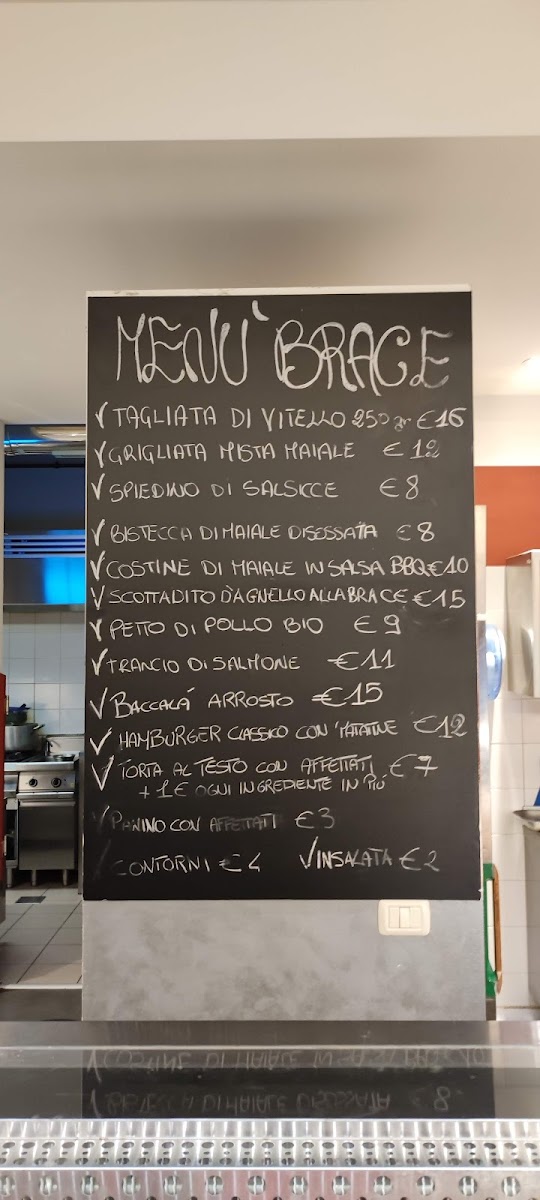 MENÙ BRACE
✓ TAGLIATA DI VITELLO 250 gr €16
✓ GRIGLIATA MISTA MAIALE €12
✓ SPIEDINO DI SALSICCE €8
✓ BISTECCA DI MAIALE DISOSSATA €8
✓ COSTINE DI MAIALE IN SALSA BBQ €10
✓ SCOTTADITO D'AGNELLO ALLA BRACE €15
✓ PETTO DI POLLO BIO €9
✓ TRANCIO DI SALMONE €11
✓ BACCALÁ ARROSTO €15
✓ HAMBURGER CLASSICO CON PATATINE €12
✓ TORTA AL TESTO CON AFFETTATI €7
+ 1€ OGNI INGREDIENTE IN PIÚ
✓ PANINO CON AFFETTATI €3
✓ CONTORNI €4 ✓ INSALATA €2